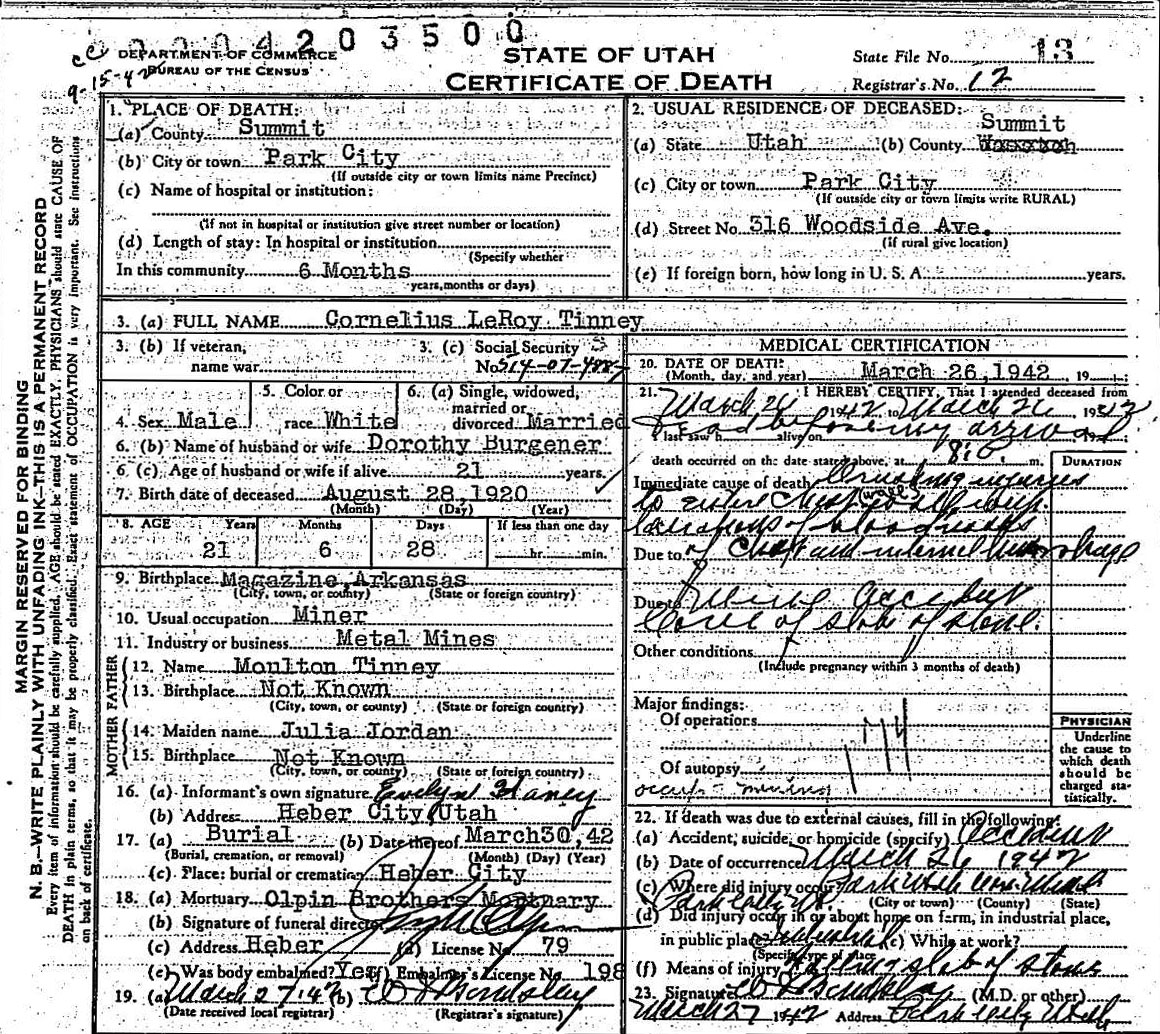 0004203500
cc
9-15-42
DEPARTMENT OF COMMERCE
BUREAU OF THE CENSUS
STATE OF UTAH
CERTIFICATE OF DEATH
State File No. 13
Registrar's No. 12
MARGIN RESERVED FOR BINDING
N. B.—WRITE PLAINLY WITH UNFADING INK—THIS IS A PERMANENT RECORD
Every item of information should be carefully supplied. AGE should be stated EXACTLY. PHYSICIANS should state CAUSE OF
DEATH in plain terms, so that it may be properly classified. Exact statement of OCCUPATION is very important. See instructions
on back of certificate.
1. PLACE OF DEATH:
(a) County Summit
(b) City or town Park City
(If outside city or town limits name Precinct)
(c) Name of hospital or institution:
(If not in hospital or institution give street number or location)
(d) Length of stay: In hospital or institution
(Specify whether
In this community 6 Months
years, months or days)
2. USUAL RESIDENCE OF DECEASED:
Summit
(a) State Utah (b) County
(c) City or town Park City
(If outside city or town limits write RURAL)
(d) Street No. 316 Woodside Ave.
(If rural give location)
(e) If foreign born, how long in U. S. A. years.
3. (a) FULL NAME Cornelius LeRoy Tinney
3. (b) If veteran, 3. (c) Social Security
name war No. 514-07-
4. Sex Male
5. Color or
race White
6. (a) Single, widowed,
married or
divorced Married
6. (b) Name of husband or wife Dorothy Burgener
6. (c) Age of husband or wife if alive 21 years.
7. Birth date of deceased August 28, 1920
(Month) (Day) (Year)
8. AGE Years Months Days If less than one day
21 6 28 hr. min.
9. Birthplace Magazine, Arkansas
(City, town, or county) (State or foreign country)
10. Usual occupation Miner
11. Industry or business Metal Mines
FATHER
12. Name Moulton Tinney
13. Birthplace Not Known
(City, town, or county) (State or foreign country)
MOTHER
14. Maiden name Julia Jordan
15. Birthplace Not Known
(City, town, or county) (State or foreign country)
16. (a) Informant's own signature Evelyn Haney
(b) Address Heber City, Utah
17. (a) Burial (b) Date thereof March 30, 42
(Burial, cremation, or removal) (Month) (Day) (Year)
(c) Place: burial or cremation Heber City
18. (a) Mortuary Olpin Brothers Mortuary
(b) Signature of funeral director Olpin
(c) Address Heber (d) License No. 79
(e) Was body embalmed? Yes (f) Embalmer's License No. 198
19. (a) March 27, 42 (b)
(Date received local registrar) (Registrar's signature)
MEDICAL CERTIFICATION
20. DATE OF DEATH: March 26, 1942, 19
(Month, day, and year)
21. I HEREBY CERTIFY, That I attended deceased from
March 26 1942 to March 26 1942
I last saw h alive on dead before my arrival 19
death occurred on the date stated above, at 8:0 m.
DURATION
Immediate cause of death Crushing injuries
to entire Chest
lacerations of blood vessels
Due to of Chest and internal hemorrhage
Due to Mining accident
Cave of slab of stone.
Other conditions
(Include pregnancy within 3 months of death)
Major findings:
Of operations
174
Of autopsy
occup - mining
PHYSICIAN
Underline
the cause to
which death
should be
charged sta-
tistically.
22. If death was due to external causes, fill in the following:
(a) Accident, suicide, or homicide (specify) Accident
(b) Date of occurrence March 26 1942
(c) Where did injury occur? Park Utah Mine
Park City Ut. (City or town) (County) (State)
(d) Did injury occur in or about home on farm, in industrial place,
in public place? Industrial (e) While at work?
(Specify type of place
(f) Means of injury Falling slab of stone
23. Signature (M.D. or other)
March 27 1942 Address Park City Utah